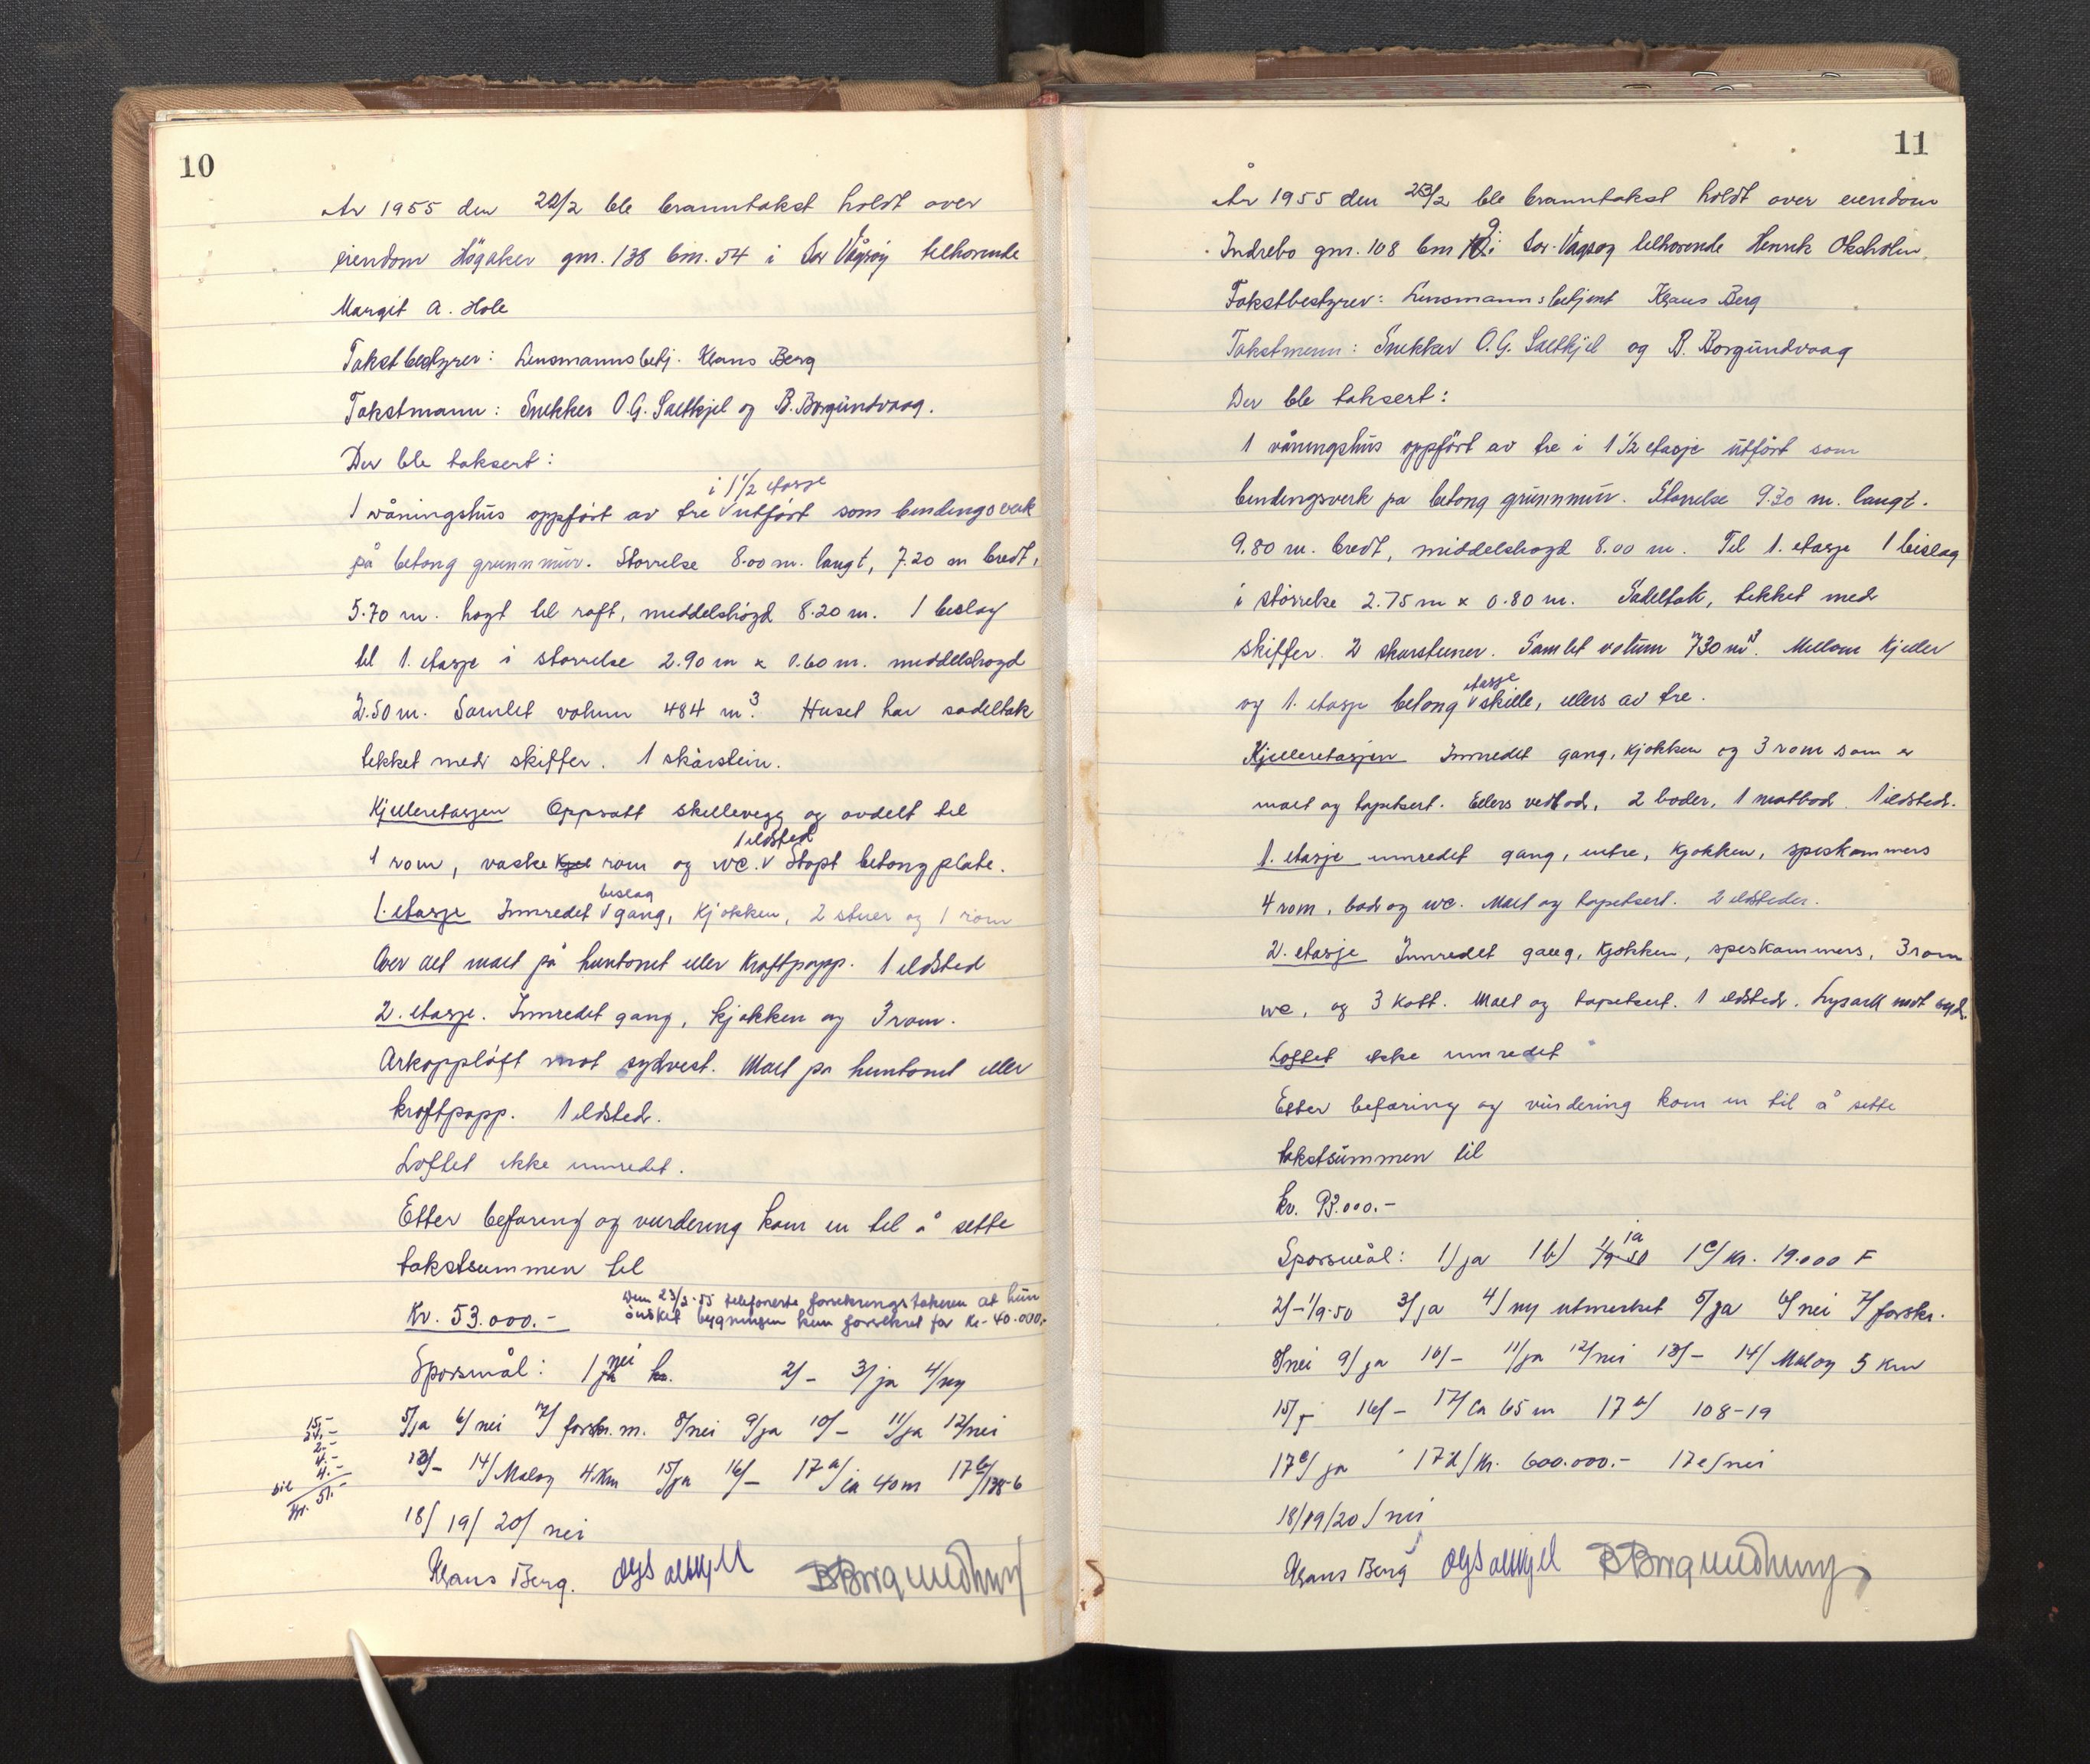 10
År 1955 den 22/2 ble branntakst holdt over
eiendom Högaker gnr. 138 bnr. 54 i Sør Vågsøy tilhørende
Margit A. Hole
Takstbestyrer: Lensmannsbetj. Klaus Berg
Takstmann: Snekker O.G. Saltkjel og B. Borgundvaag.
Der ble taksert:
i 1 1/2 etasje
1 våningshus oppført av tre V utført som bindingsverk
på betong grunnmur. Størrelse 8.00 m. langt, 7.20 m bredt,
5.70 m. høgt til raft, middelshøgd 8.20 m. 1 bislag
til 1. etasje i størrelse 2.90 m x 0.60 m. middelshøgd
2.50 m. Samlet volum 484 m³. Huset har sadeltak
tekket med skifter. 1 skårstein.
Kjelleretasjen Oppsatt skillevegg og avdelt til
1 ildsted
1 rom, vaske rom og wc. V Støpt betongplate.
bislag
1. etasje Innredet V gang, kjøkken, 2 stuer og 1 rom
Over alt malt på huntonit eller kraftpapp. 1 ildsted
2. etasje. Innredet gang, kjøkken og 3 rom.
Arkoppløft mot sydvest. Malt på huntonit eller
kraftpapp. 1 ildsted.
Loftet ikke innredet.
Etter befaring og vurdering kom en til å sette
takstsummen til
Den 23/3-55 telefonerte forsikringstakeren at hun
Kr. 53.000.- ønsket bygningen kun forsikret for kr. 40.000.-
Spørsmål: 1/ nei 2/- 3/ja 4/ny
5/ja 6/nei 7/forskr.m. 8/nei 9/ja 10/- 11/ja 12/nei
13/- 14/Måløy 4 km 15/ja 16/- 17a/ca 40 m 17b/138-6
18/ 19/ 20/ nei
15.-
2.-
4.-
4.-
bil
kr. 51.-
Klaus Berg. OGSaltkjel BBorgundvaag
11
År 1955 den 23/2 ble branntakst holdt over eiendom
Indrebø gnr. 108 bnr 9 i Sør-Vågsøy tilhørende Henrik Oksholm.
Takstbestyrer: Lensmannsbetjent Klaus Berg
Takstmenn: Snekker O.G. Saltkjel og B. Borgundvaag
Der ble taksert:
1 våningshus oppført av tre i 1 1/2 etasje utført som
bindingsverk på betong grunnmur. Størrelse 9.30 m. langt.
9.80 m. bredt, middelshøgd 8.00 m. Til 1. etasje 1 bislag
i størrelse 2.75 m x 0.80 m. Sadeltak, tekket med
skiffer. 2 skarsteiner. Samlet volum 730 m³. Mellom kjeller
etasje
og 1. etasje betong V skille, ellers av tre.
Kjelleretasjen Innredet gang, kjøkken og 3 rom som er
malt og tapetsert. Ellers vedbod, 2 boder, 1 matbod 1 ildsted.
1. etasje innredet gang, entre, kjøkken, speskammers
4 rom, bad og wc. Malt og tapetsert. 2 ildsteder.
2. etasje Innredet gang, kjøkken, speskammers, 3 rom
wc, og 3 kott. Malt og tapetsert. 1 ildsted. Lysark mot syd.
Loftet ikke innredet
Etter befaring og vurdering kom en til å sette
takstsummen til
kr. 93.000.-
ja
Spørsmål: 1/ja 1b/ 1/9-50 1c/kr. 19.000 F
2/-1/9-50 3/ja 4/ny utmerket 5/ja 6/nei 7/forskr.
8/nei 9/ja 10/- 11/ja 12/nei 13/- 14/ Måløy 5 km
15/- 16/- 17/ca 65 m 17b/ 108-19
17c/ja 17d/kr. 600.000.- 17e/nei
18/19/20/nei
Klaus Berg OGSaltkjel BBorgundvaag